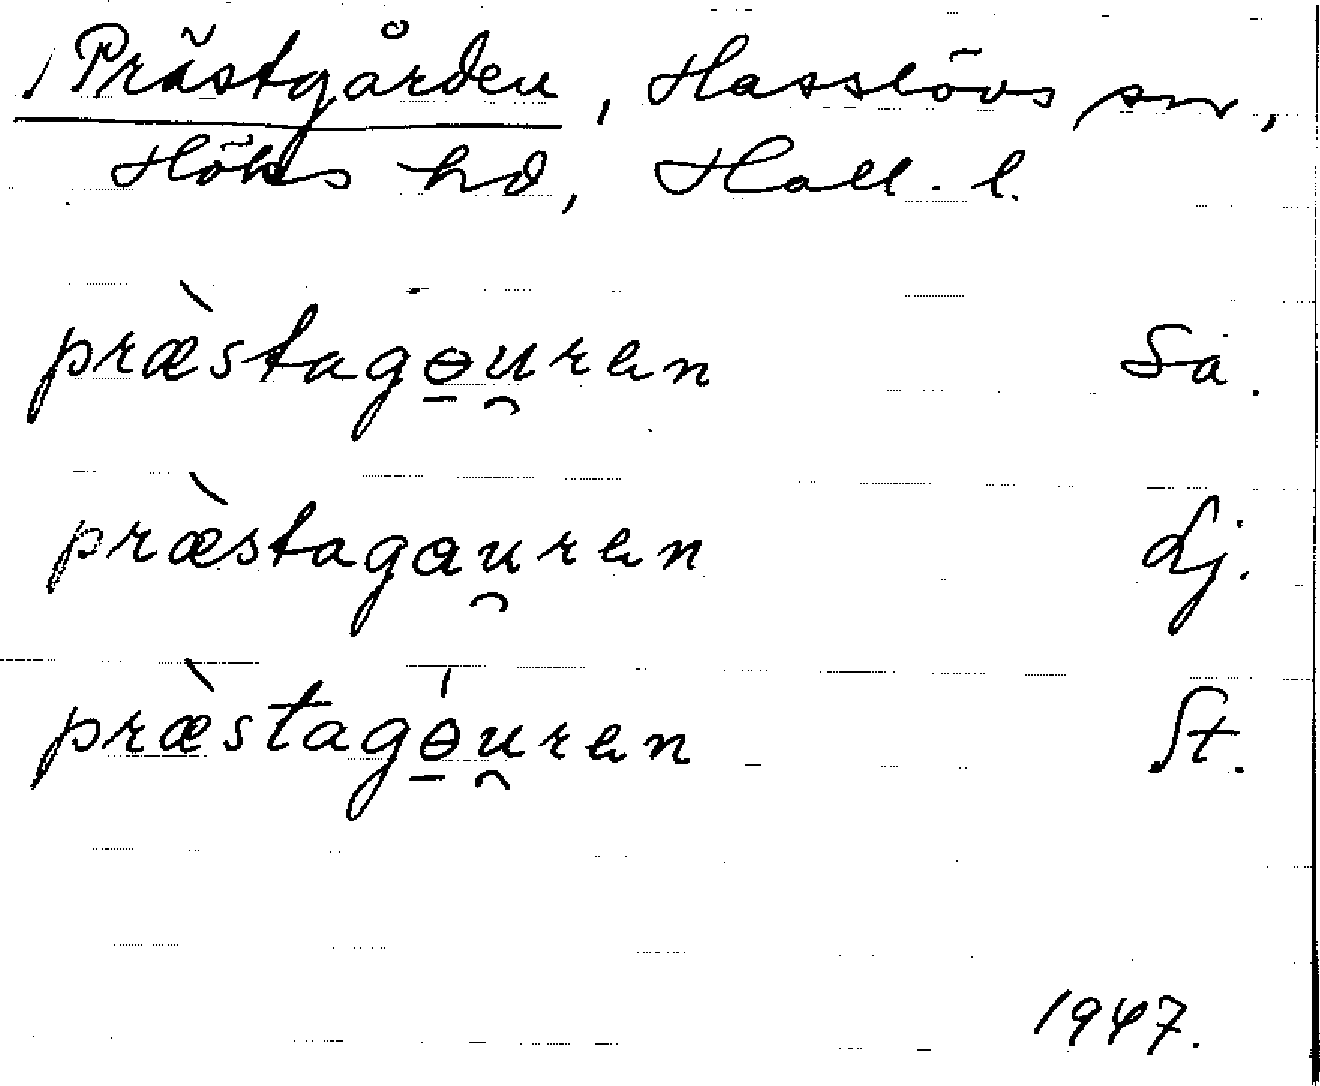 Prästgården, Hasslövs sn,
Höks hd, Hall. l.
præ̀stagɵ̱u̯ren Sä.
præ̀stagau̯ren Lj.
præ̀stagɵ̱́u̯ren St.
1947.